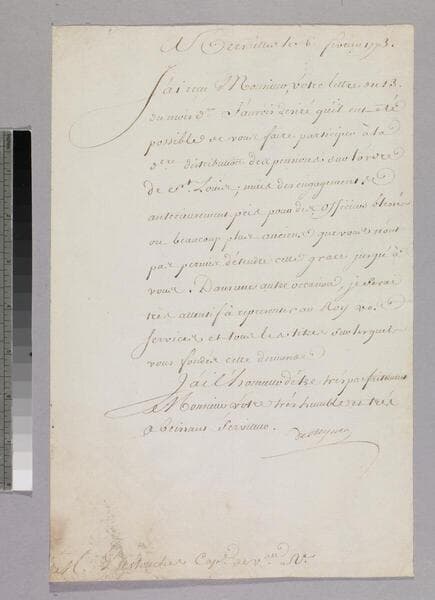 A Versailles le 6 fevrier 1773.
J'ai reçu Monsieur, votre lettre du 13
du mois d.er J'aurois desiré qu'il eut eté
possible de vous faire participer à la
d.re distribution des pensions sur l'ordre
de St Louis, mais des engagements
anterieurement pris pour des Officiers
ou beaucoup plus anciens que vous n'ont
pas permis d'etendre cette grace jusqu'à
vous. Dans une autre occasion, je serai
très attentif à representer au Roy vos
services et tous les titres sur lesquels
vous fondez cette demande
J'ai l'honneur d'être très parfaitement
Monsieur votre très humble et très
obeissant serviteur.
de Boynes
M. Destouches Cap.e de V.au